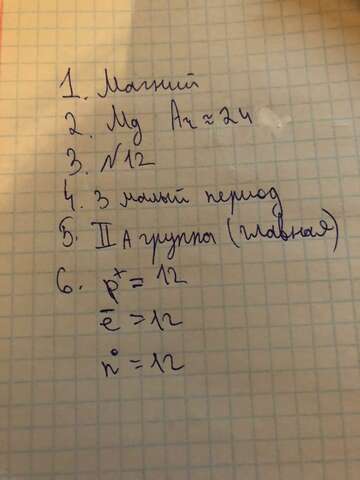 1. Магний
2. Mg Ar ≈ 24
3. №12
4. 3 малый период
5. II A группа (главная)
6. p⁺ = 12
ē = 12
n⁰ = 12